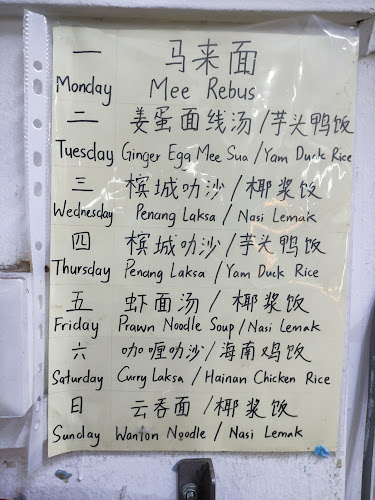 一 马来面
Monday Mee Rebus
二 姜蛋面线汤/芋头鸭饭
Tuesday Ginger Egg Mee Sua / Yam Duck Rice
三 槟城叻沙 / 椰浆饭
Wednesday Penang Laksa / Nasi Lemak
四 槟城叻沙/芋头鸭饭
Thursday Penang Laksa / Yam Duck Rice
五 虾面汤 / 椰浆饭
Friday Prawn Noodle Soup / Nasi Lemak
六 咖喱叻沙/海南鸡饭
Saturday Curry Laksa / Hainan Chicken Rice
日 云吞面 / 椰浆饭
Sunday Wanton Noodle / Nasi Lemak